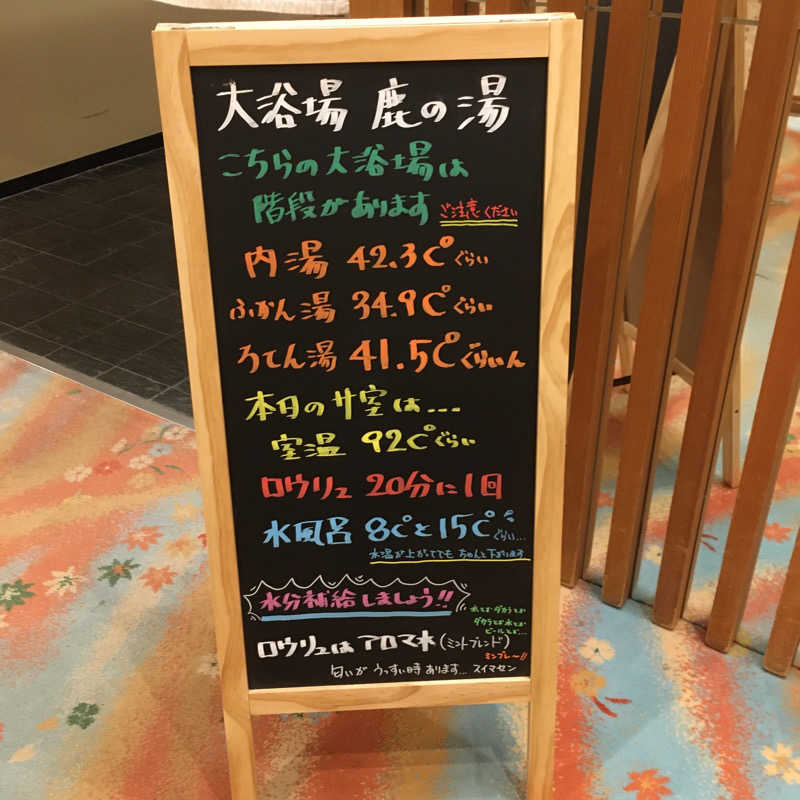 大浴場 鹿の湯
こちらの大浴場は
階段があります ご注意ください
内湯 42.3C°ぐらい
ふかん湯 34.9C°ぐらい
ろてん湯 41.5C°ぐらいん
本日のサ室は...
室温 92C°ぐらい
ロウリュ 20分に1回
水風呂 8C°と15C°ぐらい...
水温が上がててもちゃんと下がります
水分補給しましょう!!
水とかダカラとか
ダカラとか水とか
ビールとか...
ロウリュはアロマ水(ミントブレンド)
ミンブレ〜!!
匂いがうっすい時あります... スイマセン